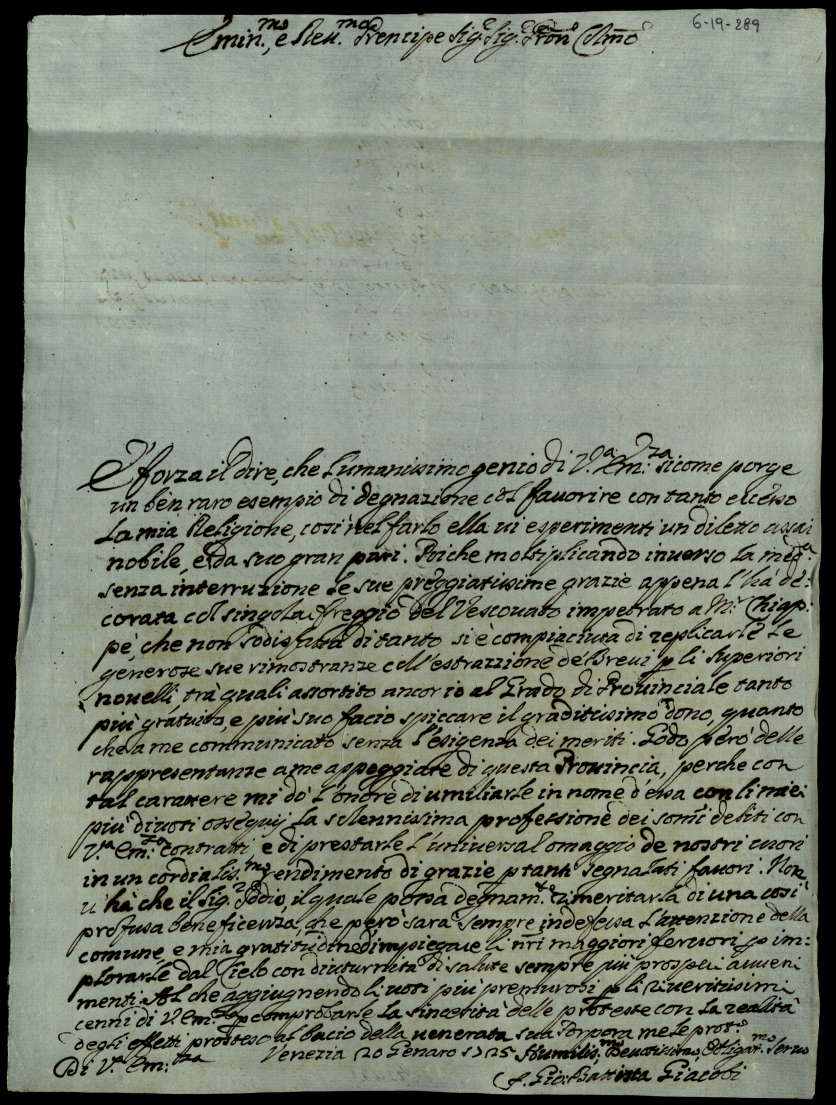 6-19-289
Emin.mo, e Reu.mo Prencipe Sig.e Sig.e Pron Colmo
E' forza il dire, che l'umanissimo genio di V.a Em.za sicome porge
un ben raro esempio di degnazione col favorire con tanto eccesso
la mia Religione, così nel farlo ella ui esperimenti un diletto assai
nobile, e da suo gran pari. Poiche moltiplicando inuerso la med.ma
senza interruzione le sue preggiatissime grazie appena l'hà de:
corata col singolar freggio del Vescouato impetrato a M.r Chiap:
pè, che non sodisfatta di tanto si è compiaciuta di replicarle le
generose sue rimostranze coll'estrazzione de Breui p li Superiori
nouelli, trà quali assortito ancor io al Grado di Prouinciale tanto
più gratuito, e più suo facio spiccare il graditissimo dono, quanto
che a me communicato senza l'esigenza dei meriti. Godo però delle
rappresentanze a me appoggiate di questa Prouincia, perche con
tal carattere mi dò l'onore di umiliarle in nome d'essa con li miei
più diuoti ossequij la solennissima professione dei somi debiti con
V.a Em.za contratti e di prestarle l'uniuersal omaggio de nostri cuori
in un cordialis.mo rendimento di grazie p tanti segnalati fauori. Non
u'hà che il Sig.r Iddio, il quale possa degnam.te rimeritarla di una così
profusa beneficenza, che però sarà sempre indefessa l'attenzione della
comune, e mia gratitudine d'impiegare li nri maggiori feruori p im:
plorarle dal Cielo con diuturnità di salute sempre più prosperi aueni
menti. Al che aggiugnendo li uoti più premurosi p li riueritissimi
cenni di V. Em.za p comprobarle la sincerità delle proteste con la realità
degli effetti prosteso al bacio della uenerata sua Porpora me le prot.o
Di V.a Em.za Venezia 20 Genaro 1725 Humilis.mo Deuotissimo, Obligat.mo Seruo
f. Gio: Battista Giacobi